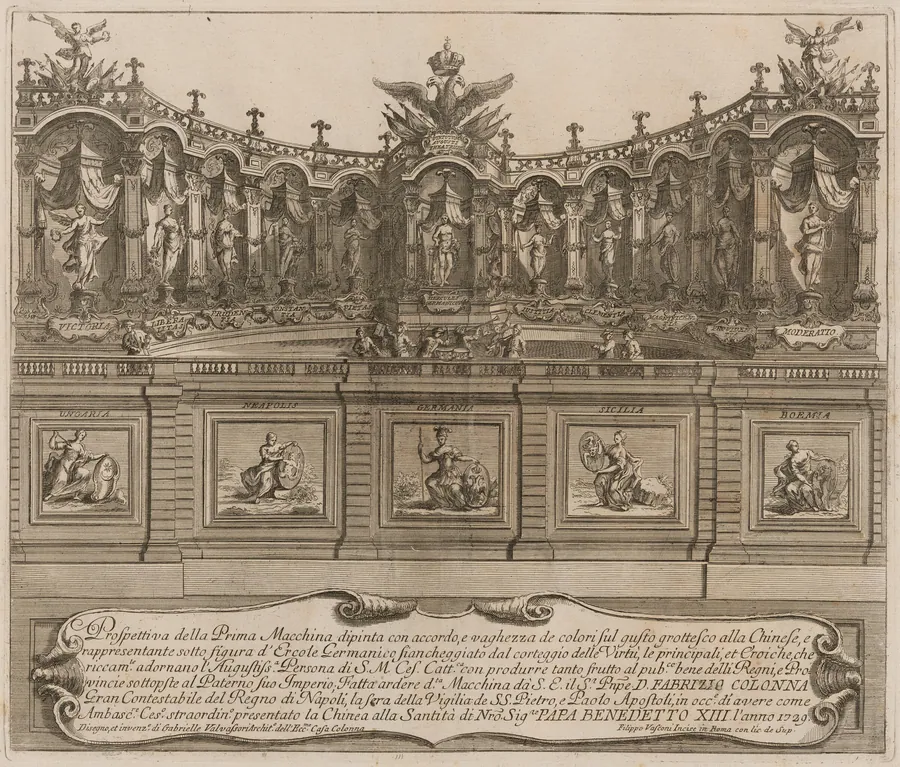 VICTORIA
LIBERA
LITAS
HERCULES
GERMANICUS
MODERATIO
UNGARIA
NEAPOLIS
GERMANIA
SICILIA
BOEMIA
Prospettiva della Prima Macchina dipinta con accordo, e vaghezza de colori sul gusto grottesco alla Chinese, e
rappresentante sotto figura d'Ercole Germanico fiancheggiato dal corteggio delle Virtù, le principali, et Eroiche, che
riccam.te adornano l'Augustiss.a Persona di S. M. Ces. Catt.ca con produrre tanto frutto al pub.co bene delli Regni, e Pro
vincie sottoposte al Paterno suo Impero, Fatta ardere d.ta Macchina dà S. E. il S.r Pnpe D. FABRIZIO COLONNA
Gran Contestabile del Regno di Napoli, la sera della Vigilia de SS. Pietro, e Paolo Apostoli, in occ.e di avere come
Ambasc.re Ces.o straordin.o presentato la Chinea alla Santità di Nrõ Sig.re PAPA BENEDETTO XIII l'anno 1729.
Disegno, et invenz.e di Gabrielle Valvassori Archit.o dell'Ecc.ma Casa Colonna
Filippo Vasconi Incise in Roma con lic. de Sup.